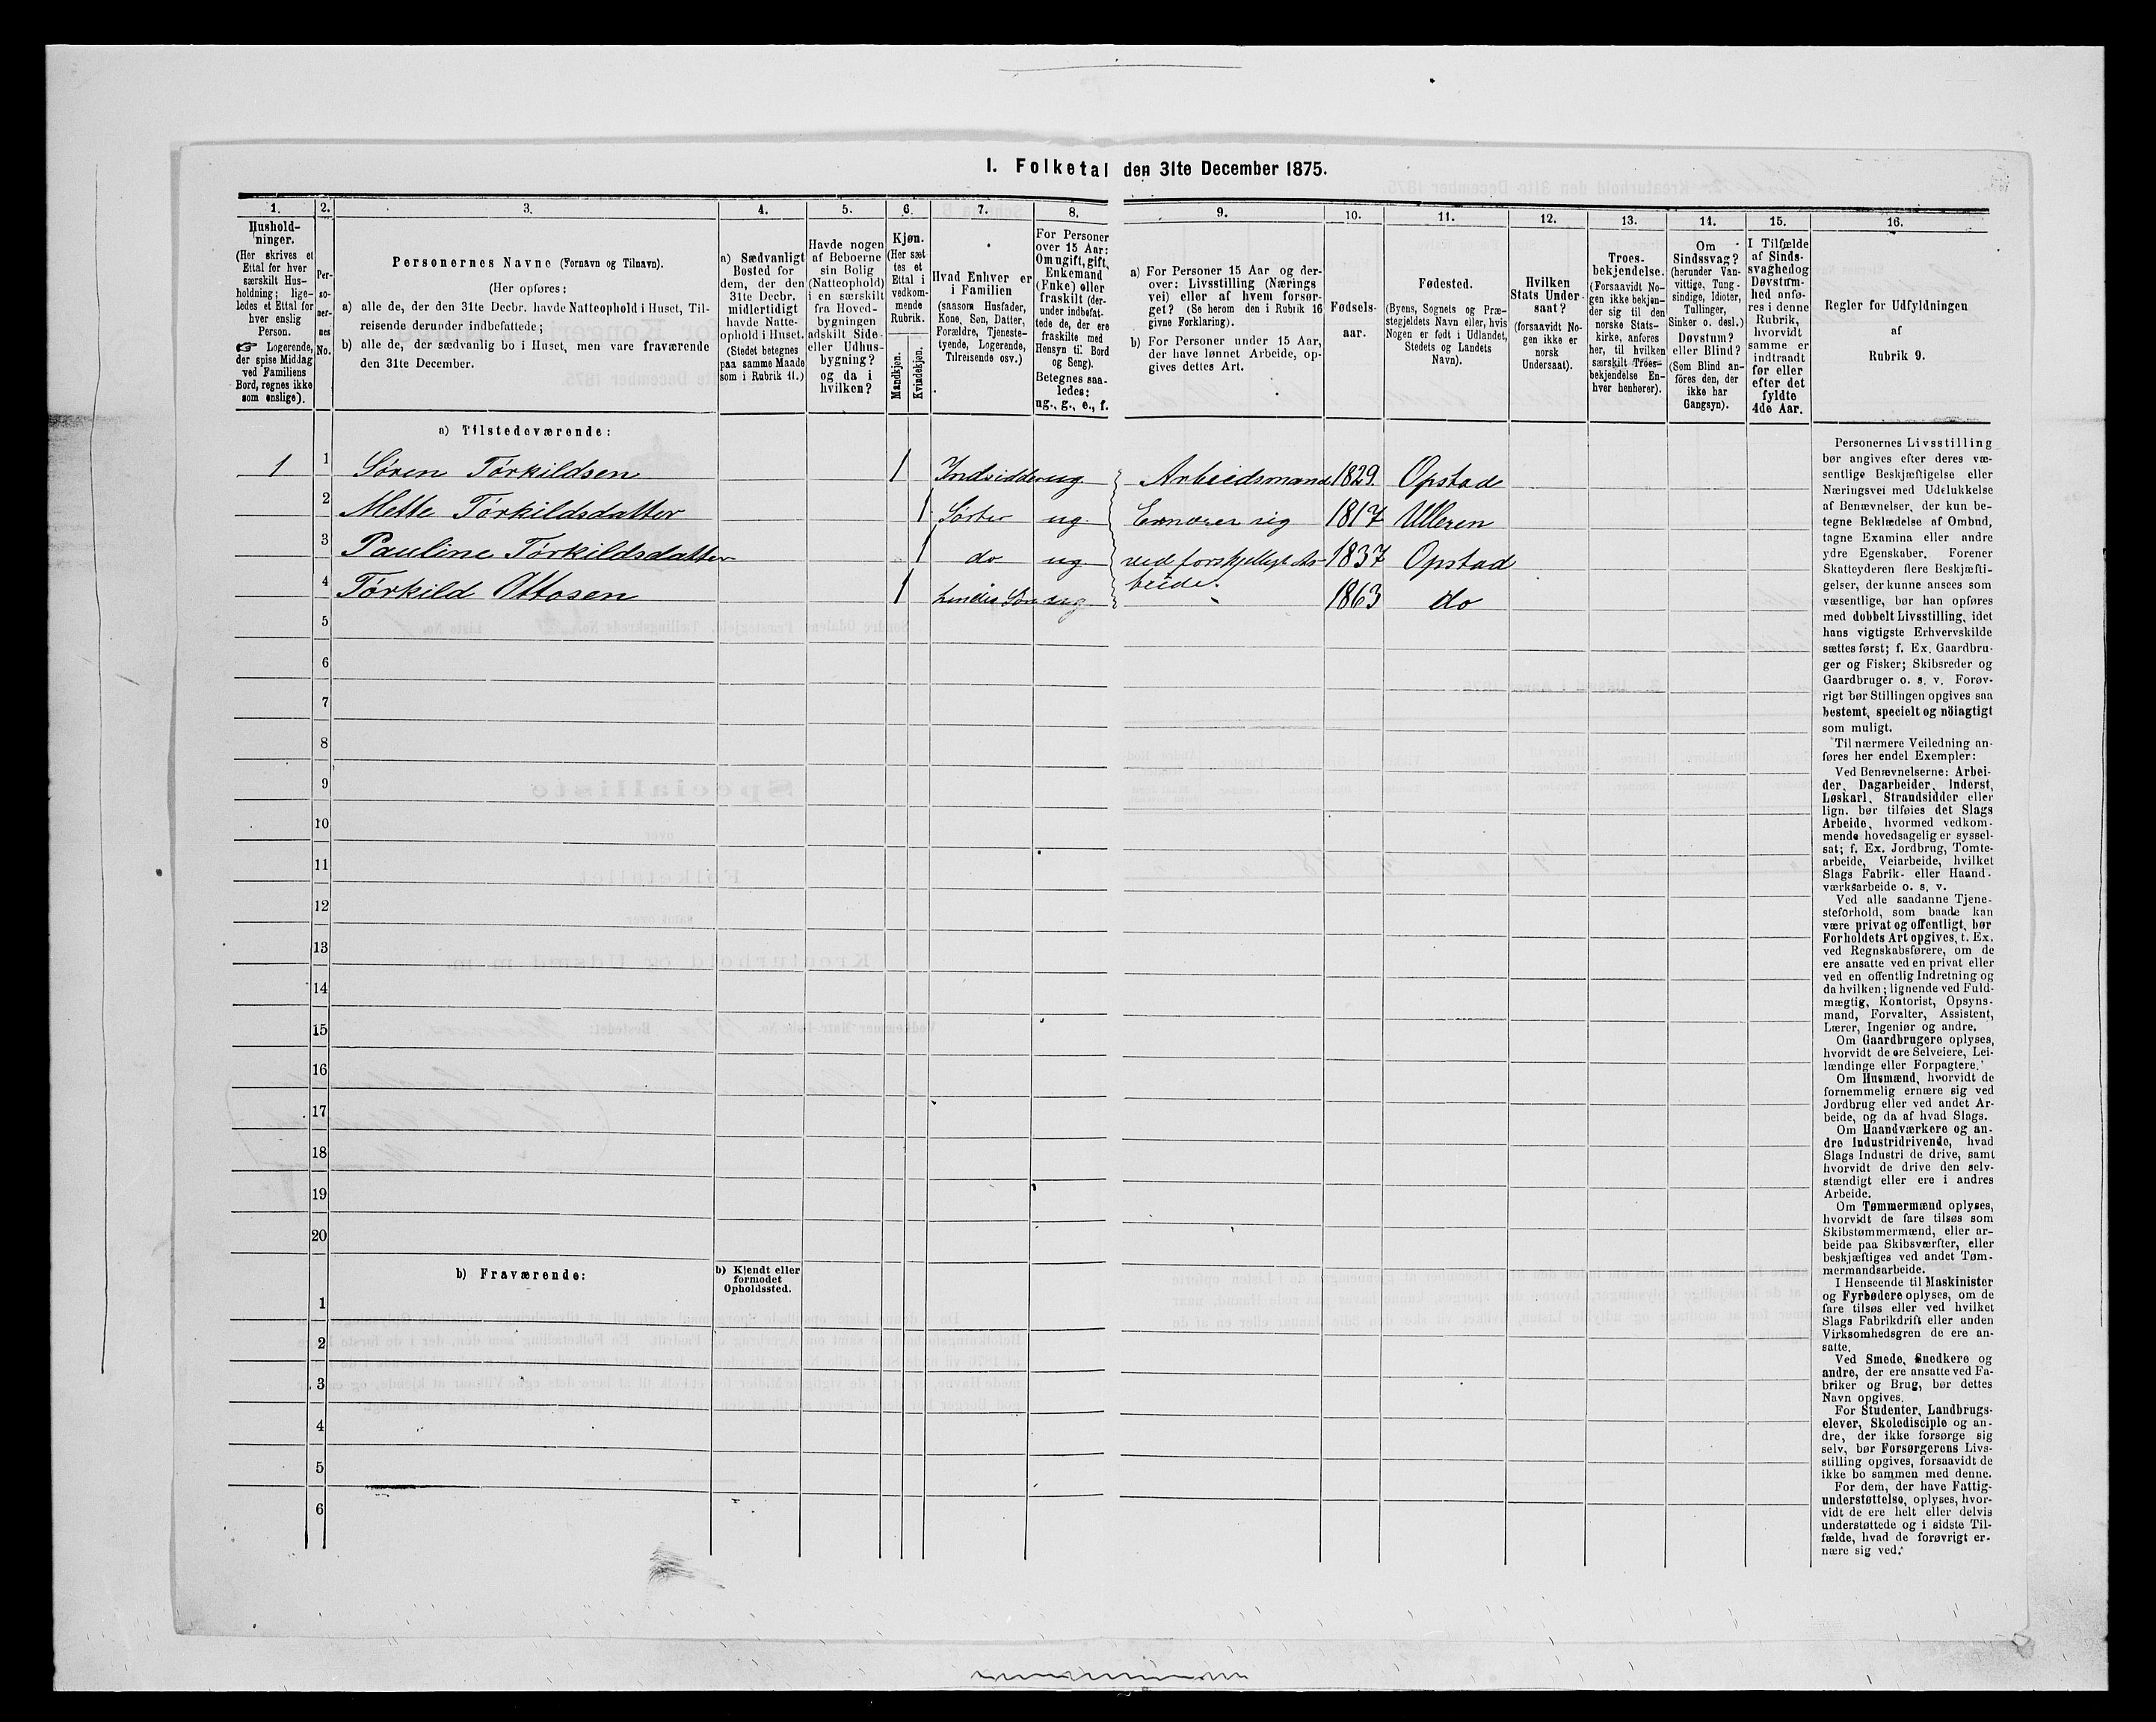 I. Folketal den 31te December 1875.
1. 2. 3. 4. 5. 6. 7. 8. 9. 10. 11. 12. 13. 14. 15. 16.
Hushold-
ninger.
(Her skrives et
Ettal for hver
særskilt Hus-
holdning; lige-
ledes et Ettal for
hver enslig
Person.
☞ Logerende,
der spise Middag
ved Familiens
Bord, regnes ikke
som enslige).
Per-
so-
ner-
nes
No.
Personernes Navne (Fornavn og Tilnavn).
(Her opføres:
a) alle de, der den 31te Decbr. havde Natteophold i Huset, Til-
reisende derunder indbefattede;
b) alle de, der sædvanlig bo i Huset, men vare fraværende
den 31te December.
a) Sædvanligt
Bosted for
dem, der den
31te Decbr.
midlertidigt
havde Natte-
ophold i Huset.
(Stedet betegnes
paa samme Maade
som i Rubrik 11.)
Havde nogen
af Beboerne
sin Bolig
(Natteophold)
i en særskilt
fra Hoved-
bygningen
adskilt Side-
eller Udhus-
bygning?
og da i
hvilken?
Kjøn.
(Her sæt
tes et
Ettal i
vedkom-
mende
Rubrik.
Mandkjøn.
Kvindekjøn.
Hvad Enhver er
i Familien
(saasom Husfader,
Kone, Søn, Datter,
Forældre, Tjeneste-
tyende, Logerende,
Tilreisende osv.)
For Personer
over 15 Aar:
Om ugift, gift,
Enkemand
(Enke) eller
fraskilt (der-
under indbefat-
tede de, der ere
fraskilte med
Hensyn til Bord
og Seng).
Betegnes saa-
ledes:
ug., g., e., f.
a) For Personer 15 Aar og der-
over: Livsstilling (Nærings
vei) eller af hvem forsør-
get? (Se herom den i Rubrik 16
givne Forklaring).
b) For Personer under 15 Aar,
der have lønnet Arbeide, op-
gives dettes Art.
Fødsels-
aar.
Fødested.
(Byens, Sognets og Præ-
stegjeldets Navn eller, hvis
Nogen er født i Udlandet,
Stedets og Landets
Navn).
Hvilken
Stats Under-
saat?
(forsaavidt No-
gen ikke er
norsk
Undersaat).
Troes-
bekjendelse.
(Forsaavidt No-
gen ikke bekjen-
der sig til den
norske Stats-
kirke, anføres
her, til hvilken
særskilt Troes-
bekjendelse En-
hver henhører).
Om
Sindssvag?
(herunder Van-
vittige, Tung-
sindige, Idioter,
Tullinger,
Sinker o. desl.)
Døvstum?
eller Blind?
(Som Blind an-
føres den, der
ikke har
Gangsyn).
I Tilfælde
af Sinds-
svaghed og
Døvstum-
hed anfø-
res i denne
Rubrik,
hvorvidt
samme er
indtraadt
før eller
efter det
fyldte
4de Aar.
Regler for Udfyldningen
af
Rubrik 9.
a) Tilstedeværende:
1 1 Søren Törkildsen 1 Indsidder ug Arbeidsmand 1829 Opstad
2 Mette Törkildsdatter 1 Söster ug Ernærer sig 1817 Ulleren
3 Pauline Törkildsdatter 1 do ug ved forskjelligt Ar- 1837 Opstad
beide.
4 Törkild Ottosen 1 hendes Søn ug 1863 do
5
6
7
8
9
10
11
12
13
14
15
16
17
18
19
20
b) Fraværende:
b) Kjendt eller
formodet
Opholdssted.
1
2
3
4
5
6
Personernes Livsstilling
bør angives efter deres væ-
sentlige Beskjæftigelse eller
Næringsvei med Udelukkelse
af Benævnelser, der kun be-
tegne Beklædelse af Ombud,
tagne Examina eller andre
ydre Egenskaber. Forener
Skatteyderen flere Beskjæfti-
gelser, der kunne ansees som
væsentlige, bør han opføres
med dobbelt Livsstilling, idet
hans vigtigste Erhvervskilde
sættes først; f. Ex. Gaardbru-
ger og Fisker; Skibsreder og
Gaardbruger o. s. v. Forøv-
rigt bør Stillingen opgives saa
bestemt, specielt og nöiagtigt
som muligt.
Til nærmere Veiledning an-
føres her endel Exempler:
Ved Benævnelserne: Arbei-
der, Dagarbeider, Inderst,
Løskarl, Strandsidder eller
lign. bør tilføies det Slags
Arbeide, hvormed vedkom-
mende hovedsagelig er syssel-
sat; f. Ex. Jordbrug, Tomte-
arbeide, Veiarbeide, hvilket
Slags Fabrik- eller Haand-
værksarbeide o. s. v.
Ved alle saadanne Tjene-
steforhold, som baade kan
være privat og offentligt, bør
Forholdets Art opgives, t. Ex.
ved Regnskabsførere, om de
ere ansatte ved en privat eller
ved en offentlig Indretning og
da hvilken; lignende ved Fuld-
mægtig, Kontorist, Opsyns-
mand, Forvalter, Assistent,
Lærer, Ingeniør og andre.
Om Gaardbrugere oplyses,
hvorvidt de ere Selveiere, Lei-
lændinge eller Forpagtere.
Om Husmænd, hvorvidt de
fornemmelig ernære sig ved
Jordbrug eller ved andet Ar-
beide, og da af hvad Slags.
Om Haandværkere og an-
dre Industridrivende, hvad
Slags Industri de drive, samt
hvorvidt de drive den selv-
stændigt eller ere i andres
Arbeide.
Om Tømmermænd oplyses,
hvorvidt de fare tilsøs som
Skibstømmermænd, eller ar-
beide paa Skibsværfter, eller
beskjæftiges ved andet Tøm-
mermandsarbeide.
I Henseende til Maskinister
og Fyrbødere oplyses, om de
fare tilsøs eller ved hvilket
Slags Fabrikdrift eller anden
Virksomhedsgren de ere an-
satte.
Ved Smede, Snedkere og
andre, der ere ansatte ved Fa-
briker og Brug, bør dettes
Navn opgives.
For Studenter, Landbrugs-
elever, Skoledisciple og an-
dre, der ikke forsørge sig
selv, bør Forsørgerens Livs-
stilling opgives, forsaavidt de
ikke bo sammen med denne.
For dem, der have Fattig-
understøttelse, oplyses, hvor-
vidt de ere helt eller delvis
understøttede og i sidste Til-
fælde, hvad de forøvrigt er-
nære sig ved.